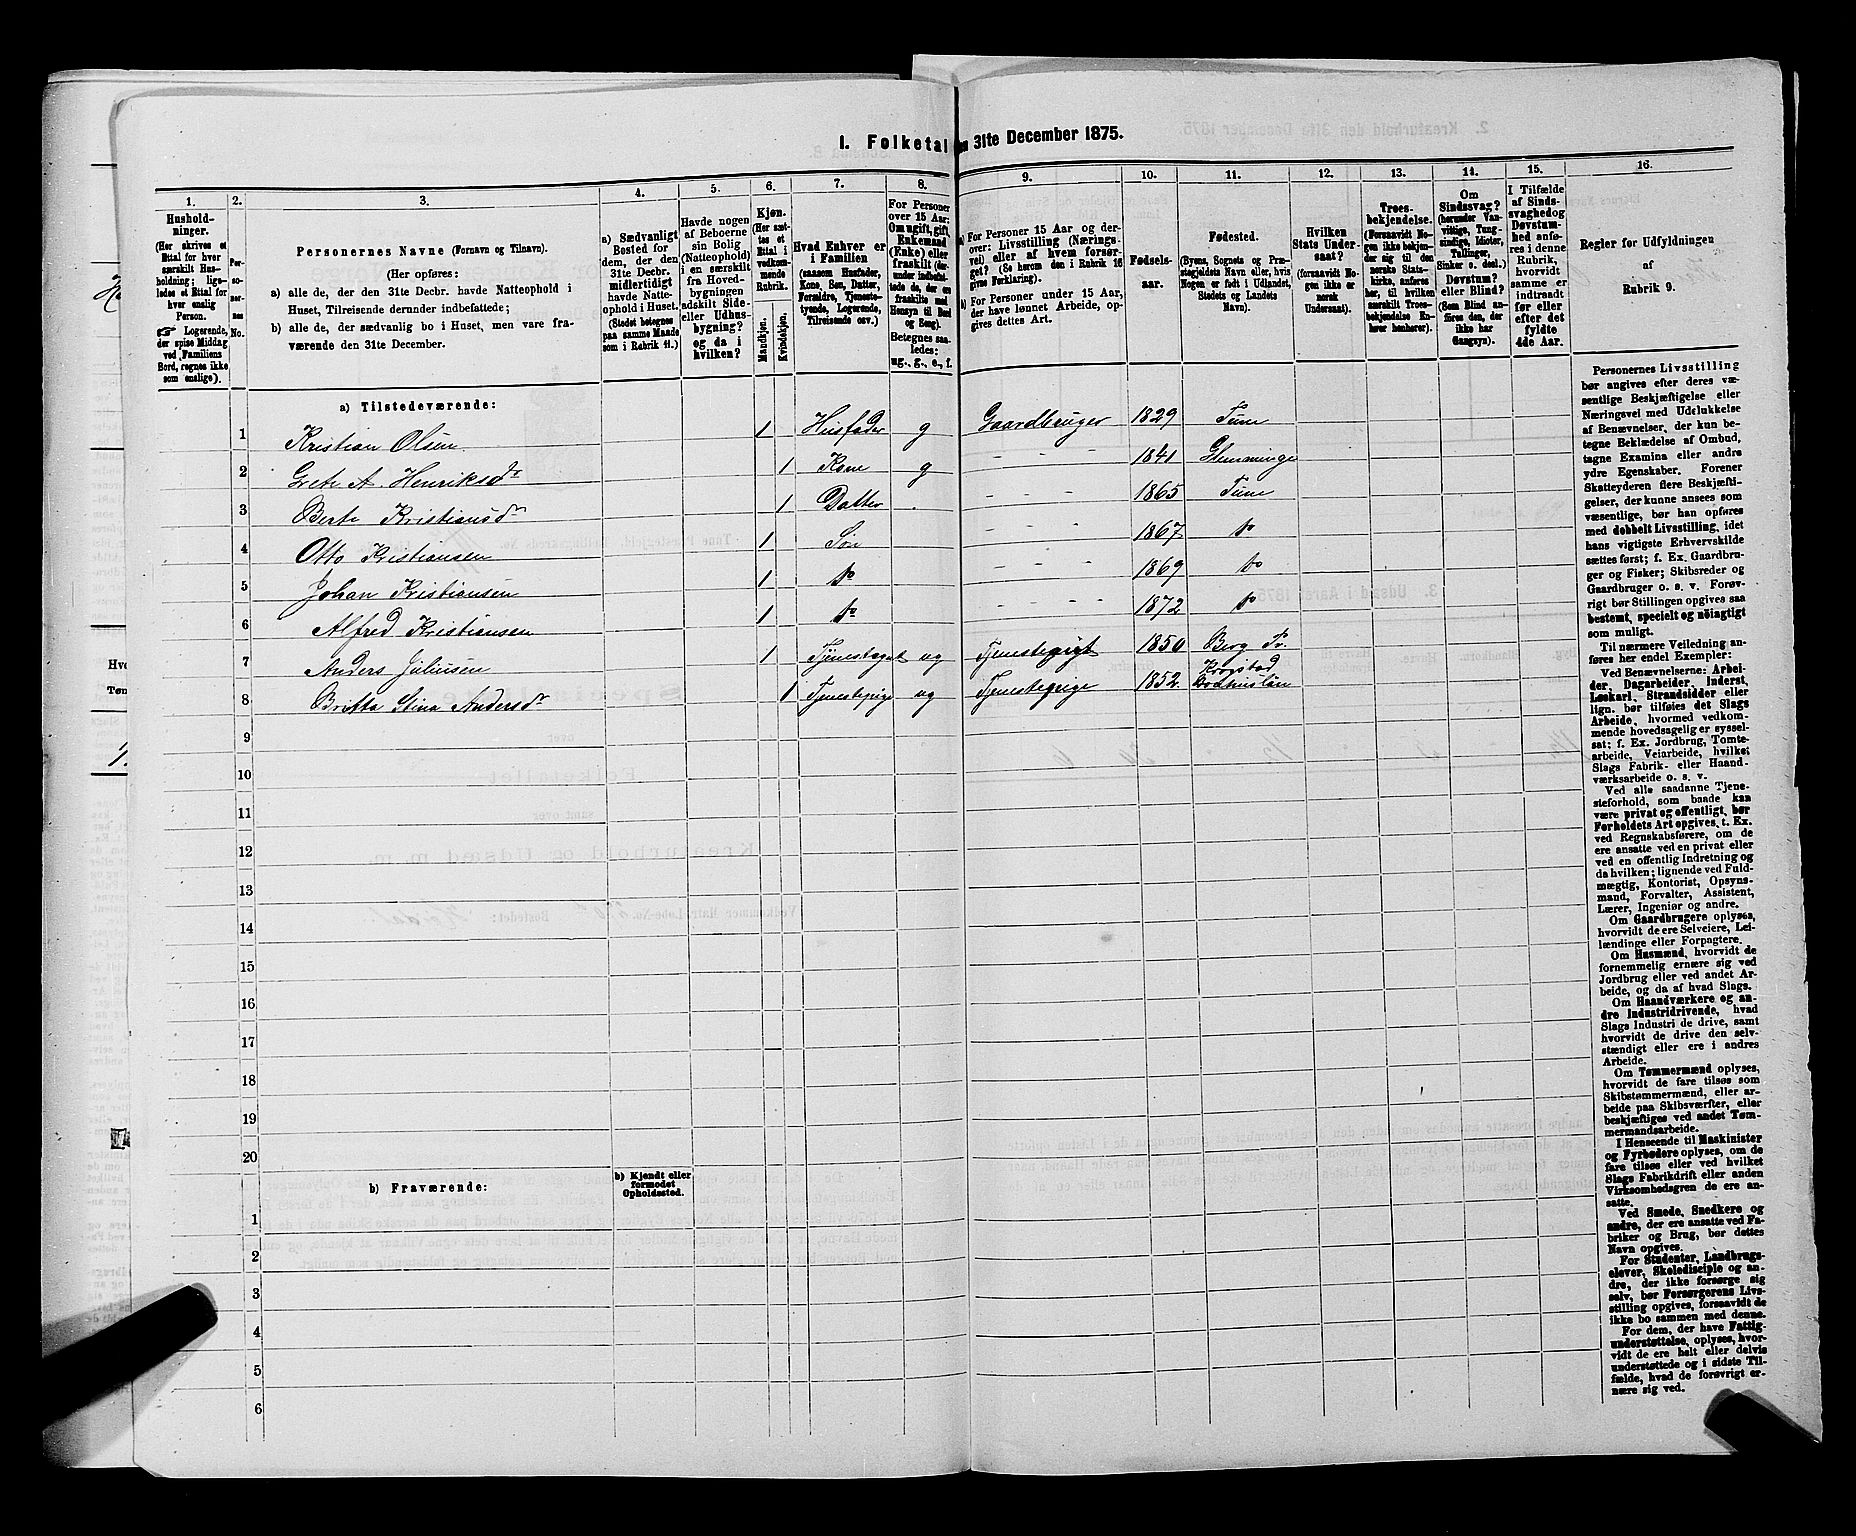 I. Folketal
en 31te December 1875.
1. 2. 3. 4. 5. 6. 7. 8. 9. 10. 11. 12. 13. 14. 15. 16.
Hushold-
ninger.
(Her skrives et
Ettal for hver
særskilt Hus-
holdning; lige-
ledes et Ettal for
hver enslig
Person.
☞ Logerende,
der spise Middag
ved Familiens
Bord, regnes ikke
som enslige).
Per-
so-
ner-
nes
No.
Personernes Navne (Fornavn og Tilnavn).
(Her opføres:
a) alle de, der den 31te Decbr. havde Natteophold i
Huset, Tilreisende derunder indbefattede;
b) alle de, der sædvanlig bo i Huset, men vare fra-
værende den 31te December.
a) Sædvanligt
Bosted for
dem, der den
31te Decbr.
midlertidigt
havde Natte-
ophold i Huset.
(Stedet betegnes
paa samme Maade
som i Rubrik 11.)
Havde nogen
af Beboerne
sin Bolig
(Natteophold)
i en særskilt
fra Hoved-
bygningen
adskilt Side-
eller Udhus-
bygning?
og da i
hvilken?
Kjøn.
(Her sæt-
tes et
Ettal i
vedkom-
mende
Rubrik.
Mandkjøn.
Kvindekjøn.
Hvad Enhver er
i Familien
(saasom Husfader,
Kone, Søn, Datter,
Forældre, Tjeneste-
tyende, Logerende,
Tilreisende osv.)
For Personer
over 15 Aar:
Om ugift, gift,
Enkemand
(Enke) eller
fraskilt (der-
under indbefat-
tede de, der ere
fraskilte med
Hensyn til Bord
og Seng).
Betegnes saa-
ledes:
ug., g., e., f.
a) For Personer 15 Aar og der-
over: Livsstilling (Nærings-
vei) eller af hvem forsør-
get? (Se herom den i Rubrik 16
givne Forklaring).
b) For Personer under 15 Aar,
der have lønnet Arbeide, op-
gives dettes Art.
Fødsels-
aar.
Fødested.
(Byens, Sognets og Præ-
stegjeldets Navn eller, hvis
Nogen er født i Udlandet,
Stedets og Landets
Navn).
Hvilken
Stats Under-
saat?
(forsaavidt No-
gen ikke er
norsk
Undersaat).
Troes-
bekjendelse.
(Forsaavidt No-
gen ikke bekjen-
der sig til den
norske Stats-
kirke, anføres
her, til hvilken
særskilt Troes-
bekjendelse En-
hver henhører).
Om
Sindssvag?
(herunder Van-
vittige, Tung-
sindige, Idioter,
Tullinger,
Sinker o. desl.)
Døvstum?
eller Blind?
(Som Blind an-
føres den, der
ikke har
Gangsyn).
I Tilfælde
af Sinds-
svaghed og
Døvstum-
hed anfø-
res i denne
Rubrik,
hvorvidt
samme er
indtraadt
før eller
efter det
fyldte
4de Aar.
Regler for Udfyldningen
af
Rubrik 9.
a) Tilstedeværende:
1 Kristian Olsen 1 Husfader g Gaardbruger 1829 Tune
2 Grete A. Henriksdr 1 Kone g - - - 1841 Glemminge
3 Berte Kristiansdr 1 Datter . - - - 1865 Tune
4 Otto Kristiansen 1 Søn - - - 1867 do
5 Johan Kristiansen 1 do - - - 1869 do
6 Alfred Kristiansen 1 do - - - 1872 do
7 Anders Juliusen 1 Tjenestegut ug Tjenestegut 1850 Berg Pr.
8 Britta Stina Andersdr 1 Tjenestepige ug Tjenestepige 1852
9
10
11
12
13
14
15
16
17
18
19
20
b) Fraværende:
b) Kjendt eller
formodet
Opholdssted.
1
2
3
4
5
6
Personernes Livsstilling
bør angives efter deres væ-
sentlige Beskjæftigelse eller
Næringsvei med Udelukkelse
af Benævnelser, der kun be-
tegne Beklædelse af Ombud,
tagne Examina eller andre
ydre Egenskaber. Forener
Skatteyderen flere Beskjæfti-
gelser, der kunne ansees som
væsentlige, bør han opføres
med dobbelt Livsstilling, idet
hans vigtigste Erhvervskilde
sættes først; f. Ex. Gaardbru-
ger og Fisker; Skibsreder og
Gaardbruger o. s. v. Forøv-
rigt bør Stillingen opgives saa
bestemt, specielt og nøiagtigt
som muligt.
Til nærmere Veiledning an-
føres her endel Exempler:
Ved Benævnelserne: Arbei-
der, Dagarbeider, Inderst,
Løskarl, Strandsidder eller
lign. bør tilføies det Slags
Arbeide, hvormed vedkom-
mende hovedsagelig er syssel-
sat; f. Ex. Jordbrug, Tomte-
arbeide, Veiarbeide, hvilket
Slags Fabrik- eller Haand-
værksarbeide o. s. v.
Ved alle saadanne Tjene-
steforhold, som baade kan
være privat og offentligt, bør
Forholdets Art opgives, t. Ex.
ved Regnskabsførere, om de
ere ansatte ved en privat eller
ved en offentlig Indretning og
da hvilken; lignende ved Fuld-
mægtig, Kontorist, Opsyns-
mand, Forvalter, Assistent,
Lærer, Ingeniør og andre.
Om Gaardbrugere oplyses,
hvorvidt de ere Selveiere, Lei-
lændinge eller Forpagtere.
Om Husmænd, hvorvidt de
fornemmelig ernære sig ved
Jordbrug eller ved andet Ar-
beide, og da af hvad Slags.
Om Haandværkere og an-
dre Industridrivende, hvad
Slags Industri de drive, samt
hvorvidt de drive den selv-
stændigt eller ere i andres
Arbeide.
Om Tømmermænd oplyses,
hvorvidt de fare tilsøs som
Skibstømmermænd, eller ar-
beide paa Skibsværfter, eller
beskjæftiges ved andet Tøm-
mermandsarbeide.
I Henseende til Maskinister
og Fyrbødere oplyses, om de
fare tilsøs eller ved hvilket
Slags Fabrikdrift eller anden
Virksomhedsgren de ere an-
satte.
Ved Smede, Snedkere og
andre, der ere ansatte ved Fa-
briker og Brug, bør dettes
Navn opgives.
For Studenter, Landbrugs-
elever, Skoledisciple og an-
dre, der ikke forsørge sig
selv, bør Forsørgerens Livs-
stilling opgives, forsaavidt de
ikke bo sammen med denne.
For dem, der have Fattig-
understøttelse, oplyses, hvor-
vidt de ere helt eller delvis
understøttede og i sidste Til-
fælde, hvad de forøvrigt er-
nære sig ved.